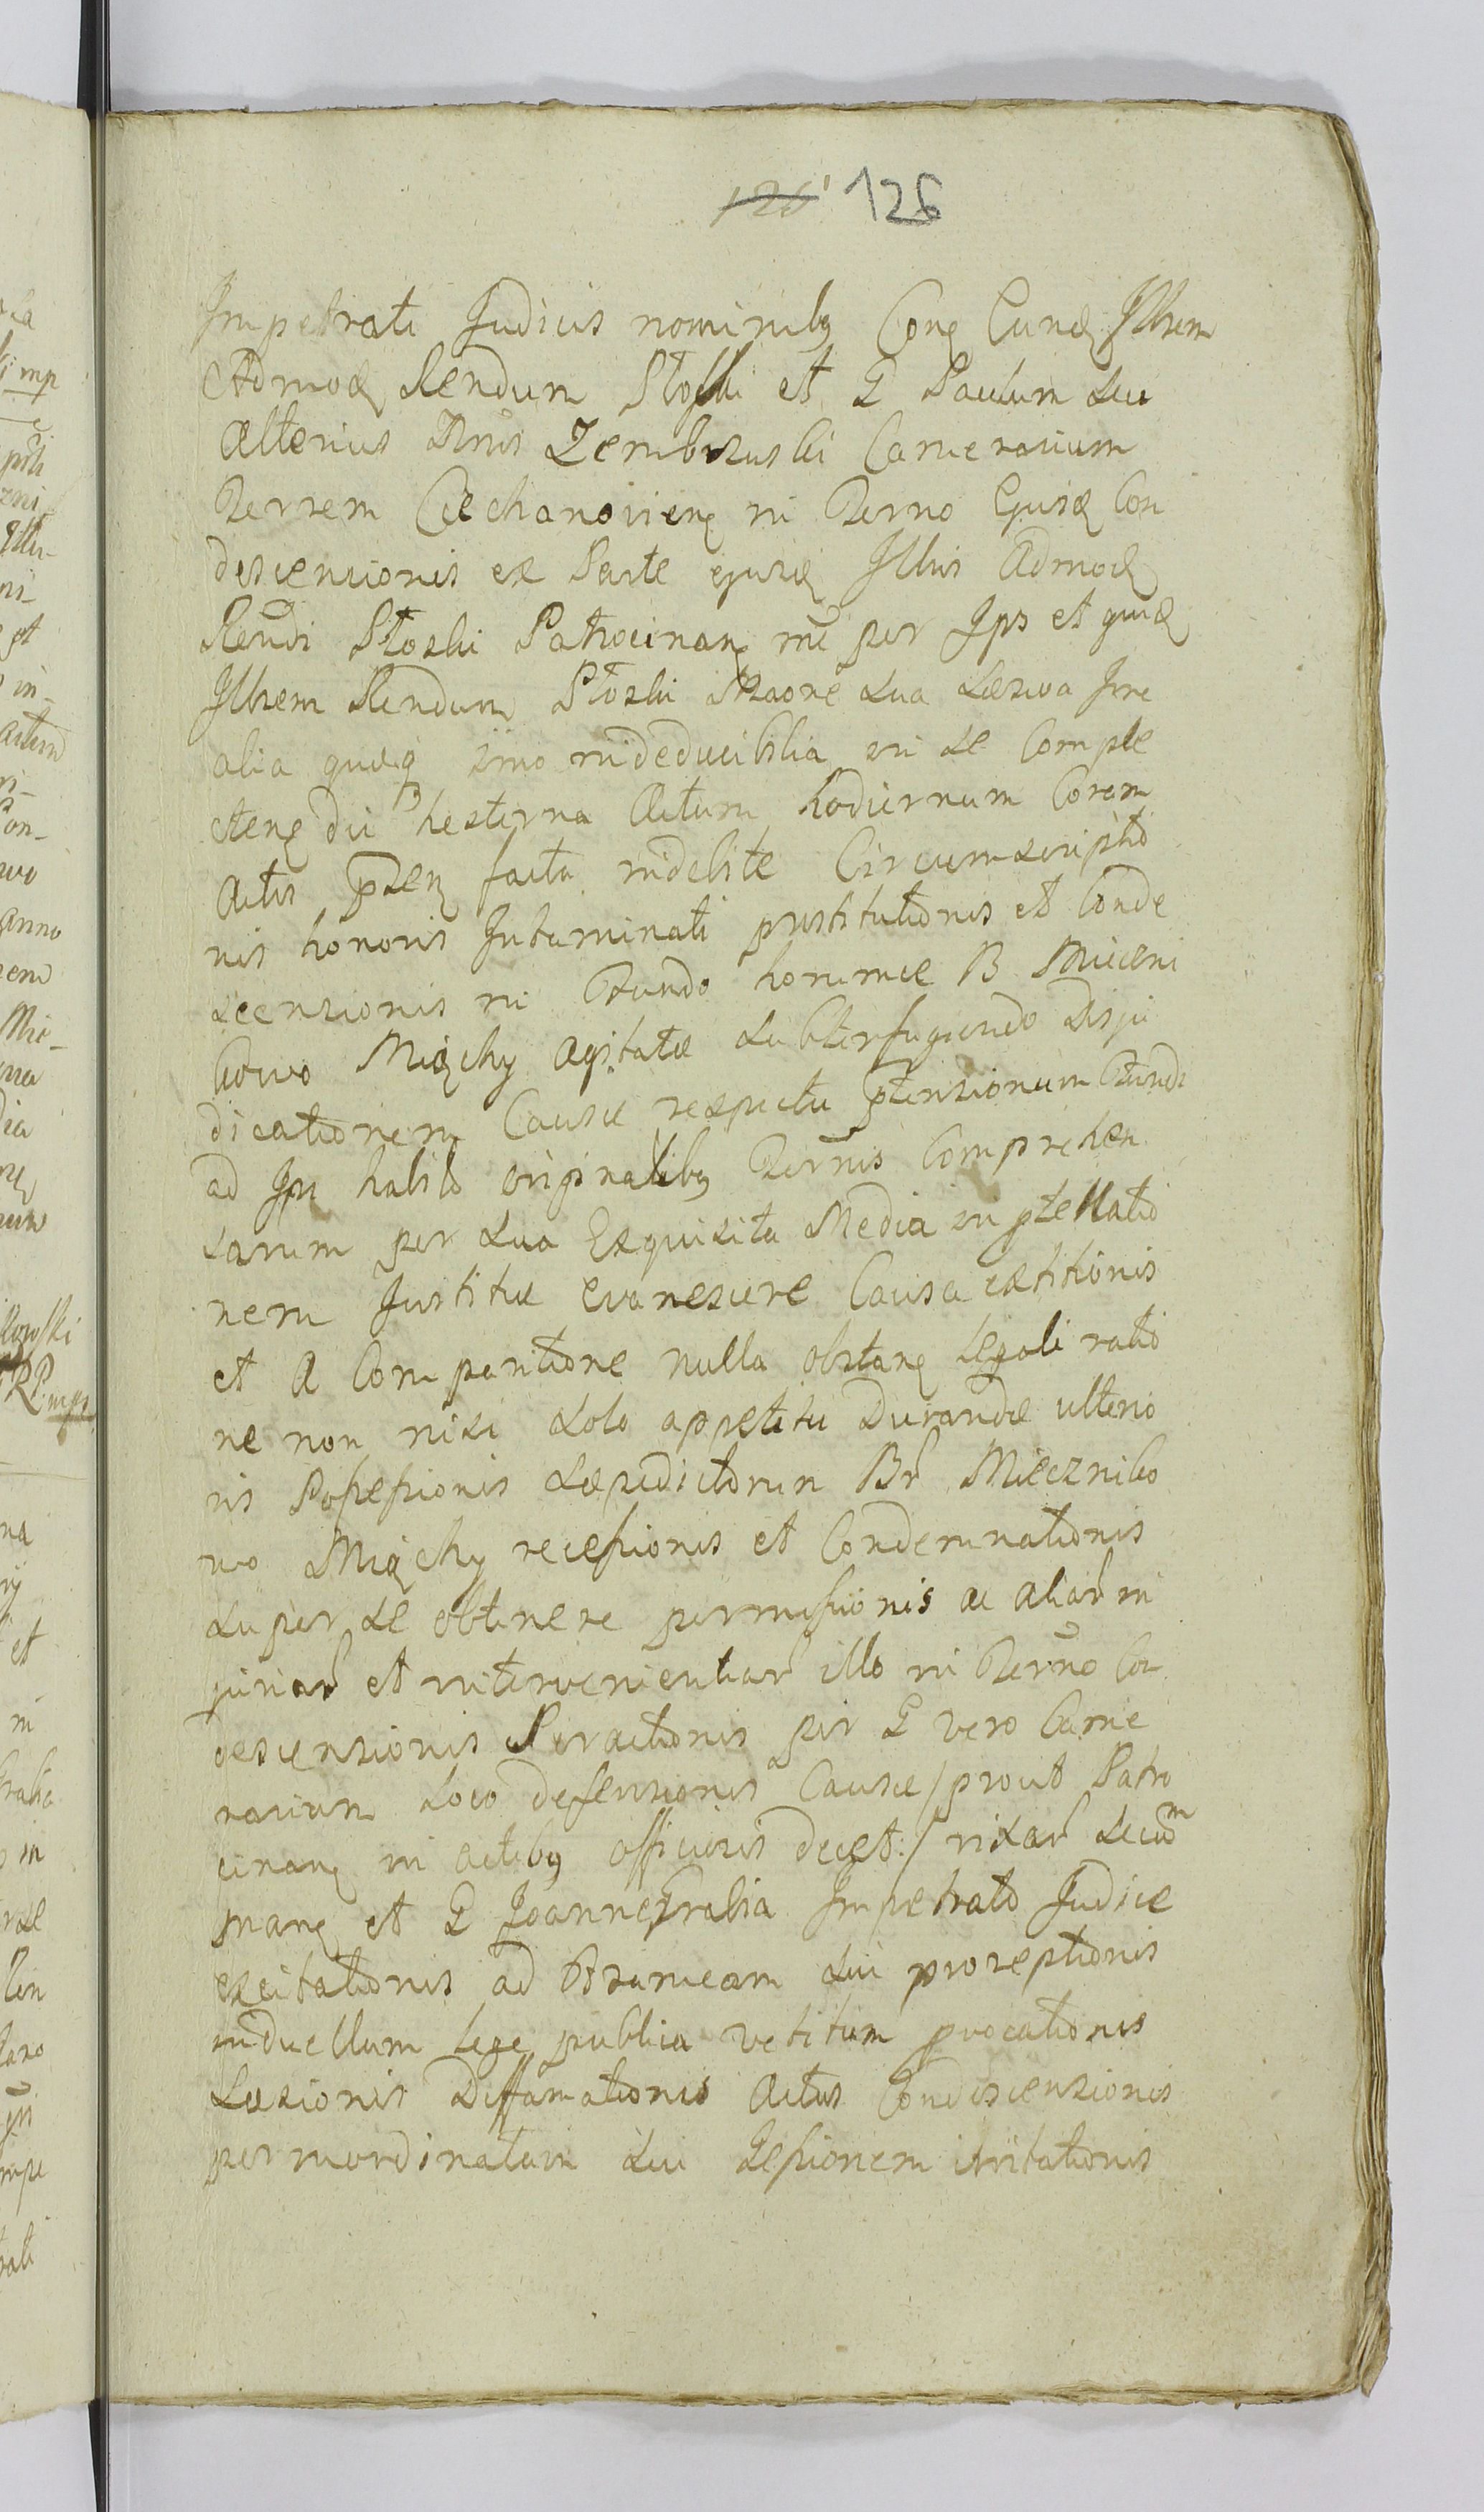 126 126
Impetrati Judicis nominibq Conq Eundq Illrem
Admodq Rendum Ploski et G Paulum Seu
Alterius Nnis Zembrzuski Camerarium
Terrem Ciechanovienq in Terno Ejusdq Con
descensionis ex Parte ejusdq Illris Admodq
Rendi Ploski Patrocinanq me per Ips et quidq
Illrem Rendum Ploski Maone Sua Laesiva Jme
alia quaeq imo indeducibilia in se Comple
ctenq die hesterna Actum hodiernum Coram
Actis pntenq facta indebite Circumscriptio
nis honoris Intaminati prostitutionis et Conde
scensionis in fundo honumce B Mieczni
kowo Miąchy agitatae Subterfugiendo Disju
dicationem Causae respectu ptensionum fundi
ad Ips habito originalibq Ternis Comprehen
sarum per Sua Exquisita Media in ptellatio
nem Justitiae evanescere Causa extitionis
et a Comparitione nulla obstanq legali ratio
ne non nisi Solo appetitu Durandae ulterio
ris Possessionis Saepedictorum Br Mieczniko
wo Miąchy recessionis et Condemnationis
super se obtinere permissionis ac aliar in
juriar et intervenientiar illo in Terno Con
descensionis Peractionis per G vero Came
rarium Loco defensionis Causae /prout Patro
cinanq in actibq officiosis decet:/ rixar Secum
manq et G Joanne Gralia Impetrato Judice
excitationis ad Frameam Sui proreptionis
in duellum lege publica vetitum provocationis
Laesionis Diffamationis Actus Condescensionis
per inordinatam Sui Gessionem irritationis